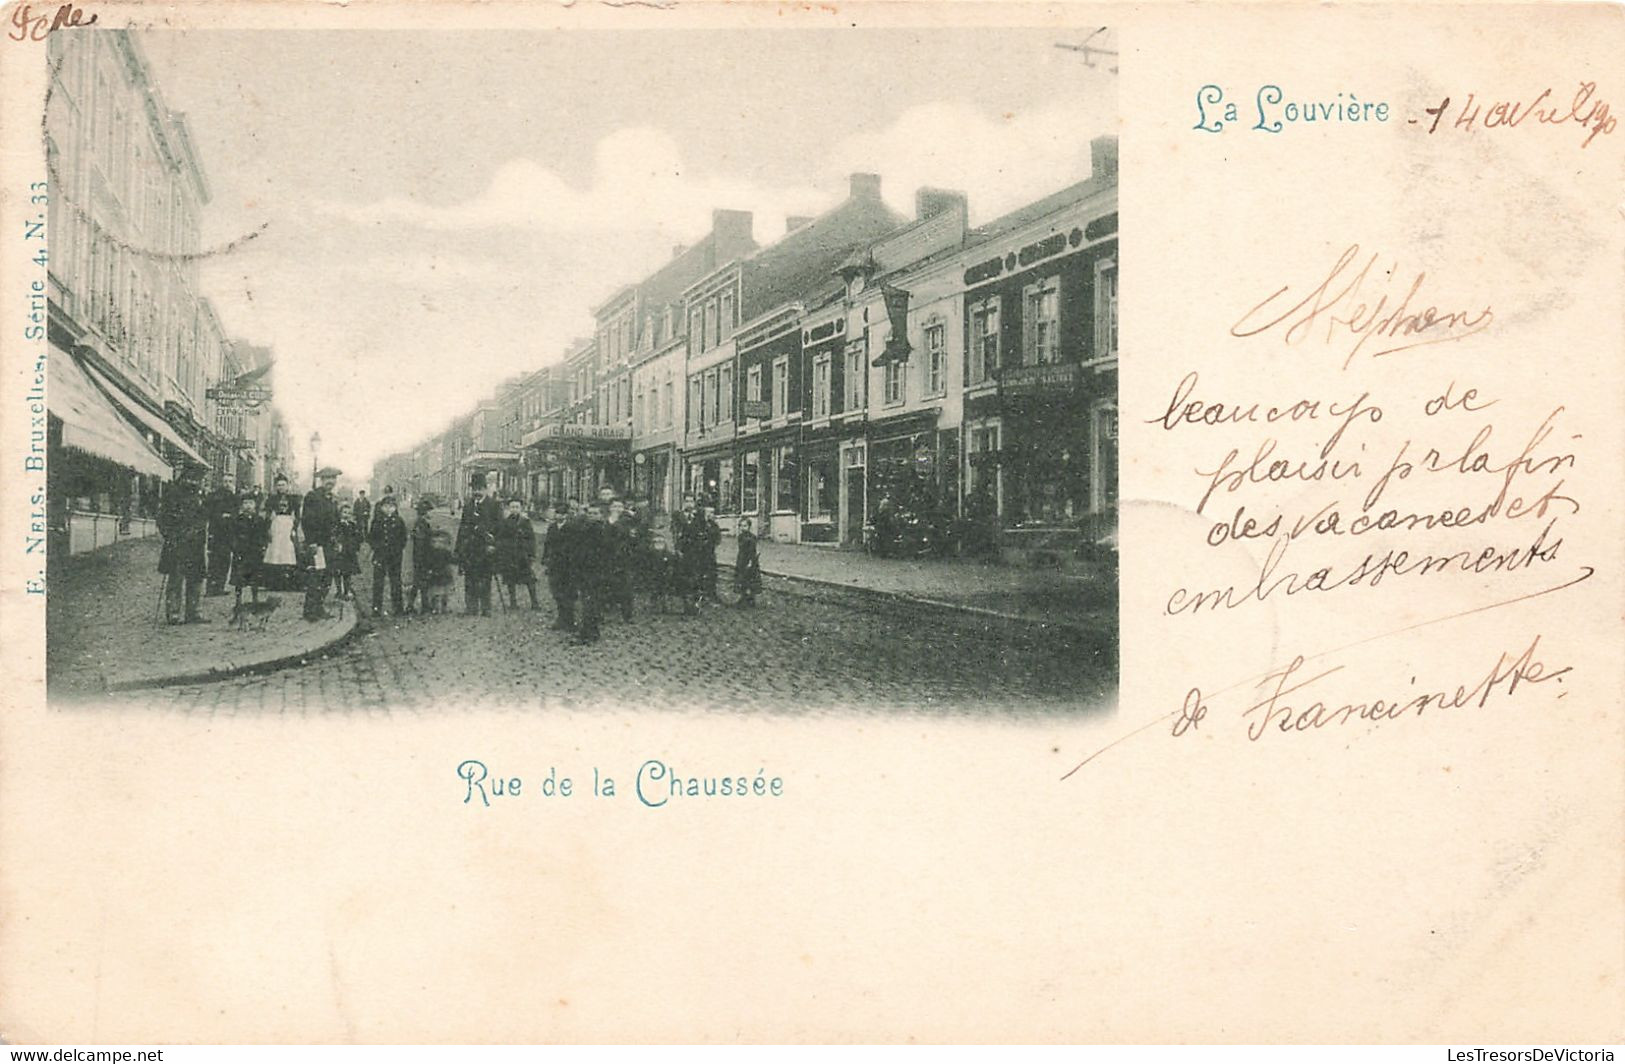 La Louvière 14 avril 190
E. NELS, Bruxelles, Série 4, N. 33
EXPOSITION
GRAND RABAIS
Stéphan
beaucoup de
plaisir pr la fin
des vacances et
embrassements
de Francinette.
Rue de la Chaussée
www.delcampe.net
LesTresorsDeVictoria